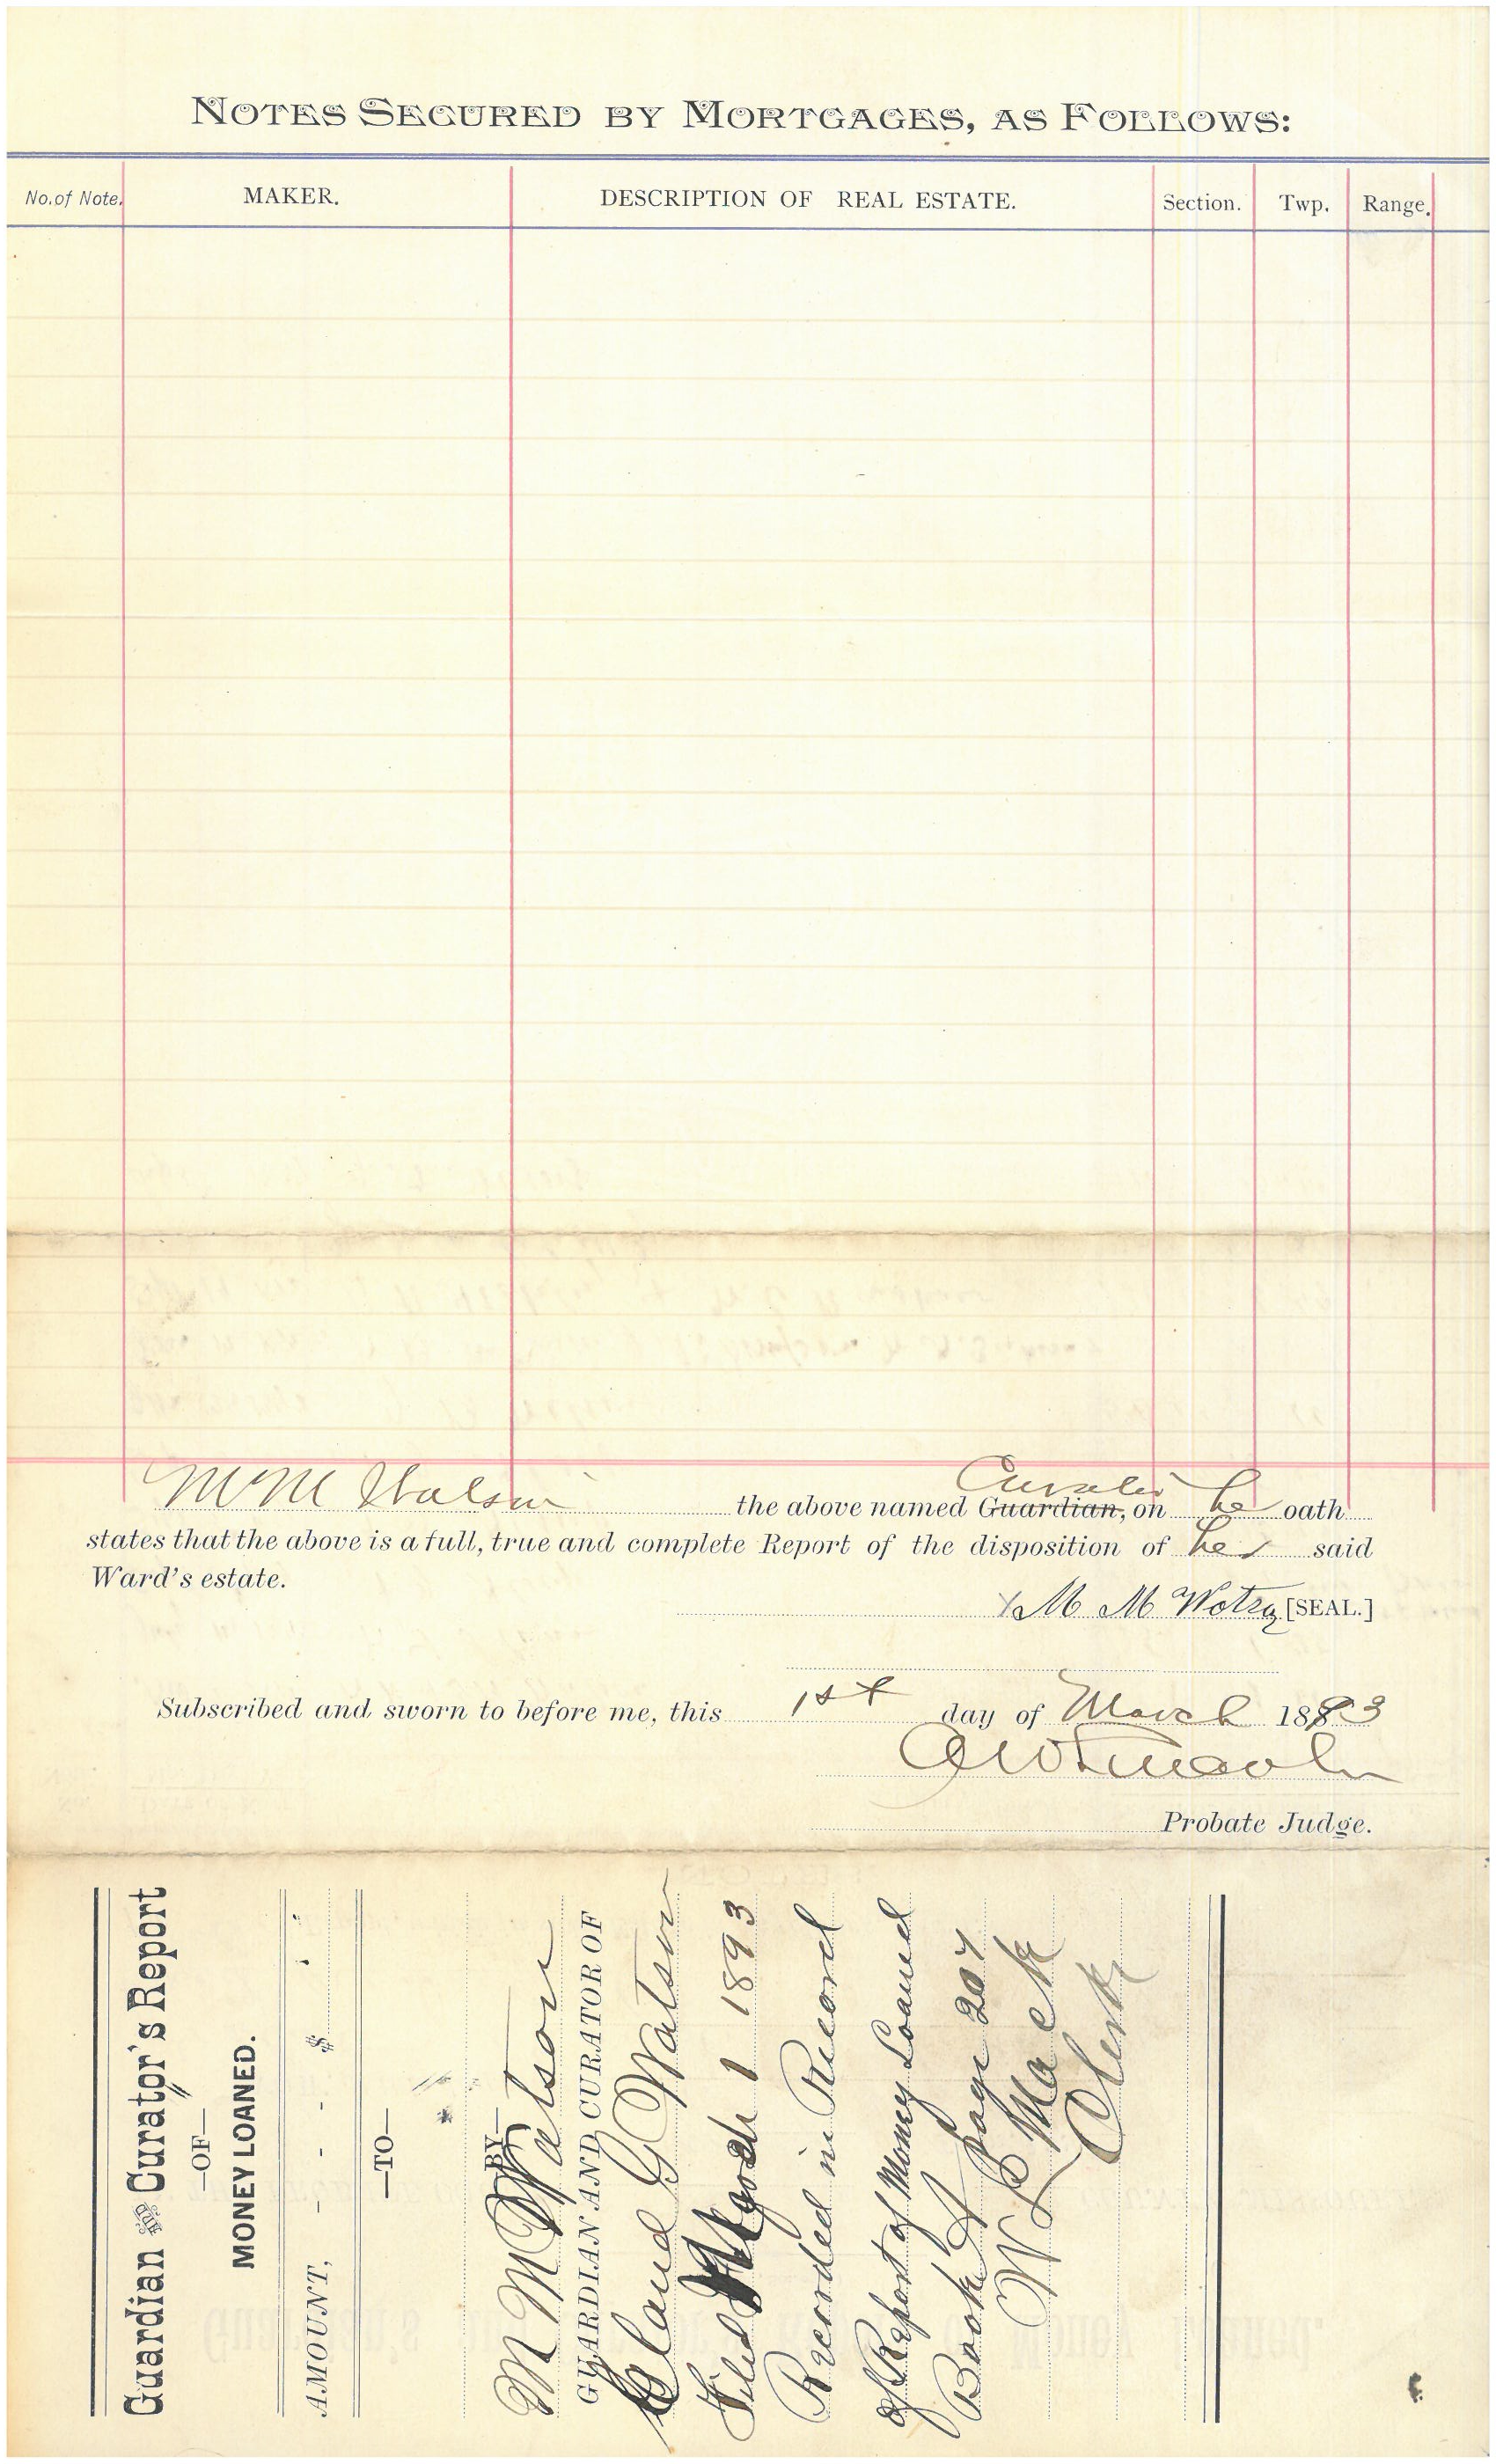 NOTES SECURED BY MORTGAGES, AS FOLLOWS:
No. of Note. MAKER. DESCRIPTION OF REAL ESTATE. Section. Twp. Range.
Curator
M M Watson the above named Guardian, on he oath
states that the above is a full, true and complete Report of the disposition of her said
Ward's estate.
M M Wotsn [SEAL.]
Subscribed and sworn to before me, this 1st day of March 1893
A W Lincoln
Probate Judge.
Guardian and Curator's Report
—OF—
MONEY LOANED.
AMOUNT, - - - $
—TO—
—BY—
M M Watson
GUARDIAN AND CURATOR OF
Claud G Watson
Filed March 1 1893
Recorded in Record
of Report of Money Loaned
Book A page 207
W E Mack
Clerk